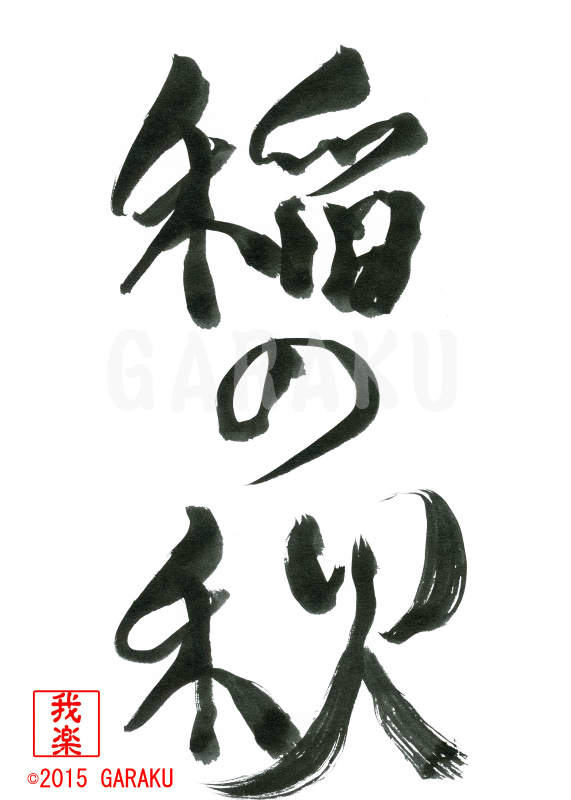 稲
の
秋
GARAKU
我楽
©2015 GARAKU